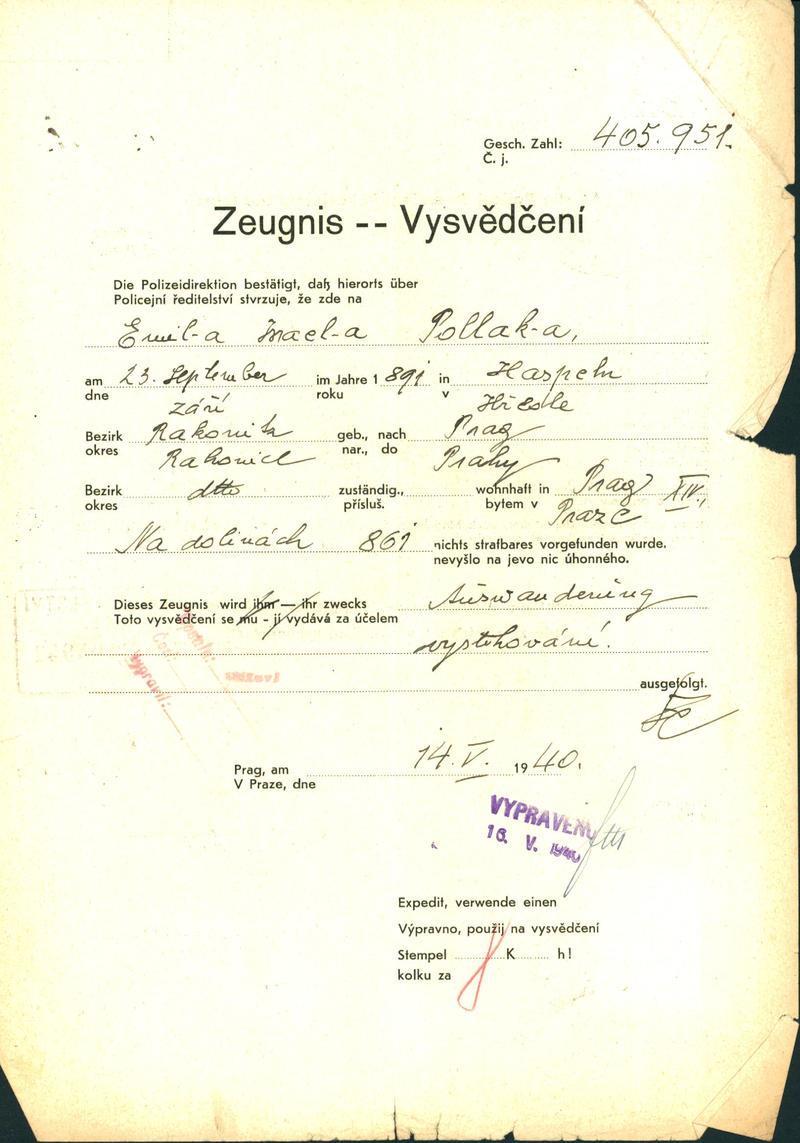 Gesch. Zahl: 405.951.
Č. j.
Zeugnis -- Vysvědčení
Die Polizeidirektion bestätigt, daß hierorts über
Policejní ředitelství stvrzuje, že zde na
Emil-a Israel-a Pollak-a,
am 23. September im Jahre 1891 in
dne září roku v Hředle
Bezirk Rakonitz geb., nach Prag
okres Rakovník nar., do Prahy
Bezirk dtto zuständig., wohnhaft in Prag XIV.,
okres přísluš. bytem v Praze
Na dolinách 861 nichts strafbares vorgefunden wurde.
nevyšlo na jevo nic úhonného.
Dieses Zeugnis wird ihm — ihr zwecks Auswanderung
Toto vysvědčení se mu - jí vydává za účelem
vystěhování.
ausgefolgt.
Prag, am 14. V. 1940.
V Praze, dne
VYPRAVENO
16. V. 1940
Expedit, verwende einen
Výpravno, použij na vysvědčení
Stempel K h!
kolku za